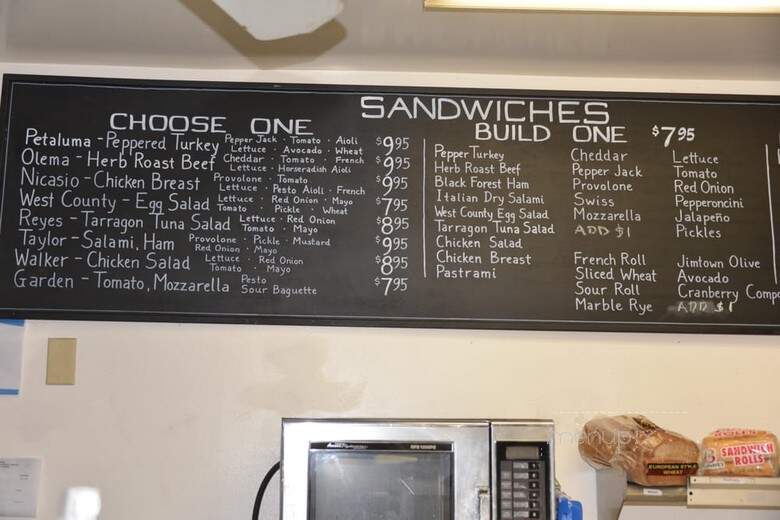 SANDWICHES
CHOOSE ONE
Petaluma - Peppered Turkey Pepper Jack · Tomato · Aioli $9.95
Lettuce · Avocado · Wheat
Olema - Herb Roast Beef Cheddar · Tomato · French $9.95
Lettuce · Horseradish Aioli
Nicasio - Chicken Breast Provolone · Tomato $9.95
Lettuce · Pesto Aioli · French
West County - Egg Salad Lettuce · Red Onion · Mayo $7.95
Tomato · Pickle · Wheat
Reyes - Tarragon Tuna Salad Lettuce · Red Onion $8.95
Tomato · Mayo
Taylor - Salami, Ham Provolone · Pickle · Mustard $9.95
Red Onion · Mayo
Walker - Chicken Salad Lettuce · Red Onion $8.95
Tomato · Mayo
Garden - Tomato, Mozzarella Pesto $7.95
Sour Baguette
BUILD ONE $7.95
Pepper Turkey
Herb Roast Beef
Black Forest Ham
Italian Dry Salami
West County Egg Salad
Tarragon Tuna Salad
Chicken Salad
Chicken Breast
Pastrami
Cheddar
Pepper Jack
Provolone
Swiss
Mozzarella
ADD $1
French Roll
Sliced Wheat
Sour Roll
Marble Rye
Lettuce
Tomato
Red Onion
Pepperoncini
Jalapeño
Pickles
Jimtown Olive
Avocado
Cranberry Comp
ADD $1
EUROPEAN STYLE
WHEAT
ROLLS
SANDWICH
ROLLS